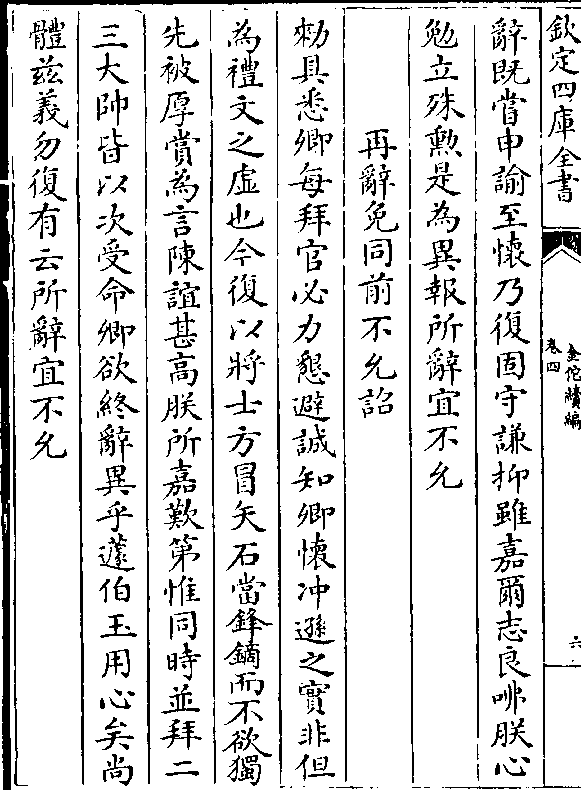 欽定四庫全書
金佗續編
卷四
六
辭既嘗申諭至懷乃復固守謙抑雖嘉爾志良咈朕心
勉立殊勲是為異報所辭宜不允
再辭免同前不允詔
勑具悉卿每拜官必力懇避誠知卿懷沖遜之實非但
為禮文之虛也今復以將士方冒矢石當鋒鏑而不欲獨
先被厚賞為言陳誼甚高朕所嘉歎第惟同時並拜二
三大帥皆以次受命卿欲終辭異乎蘧伯玉用心矣尚
體兹義勿復有云所辭宜不允